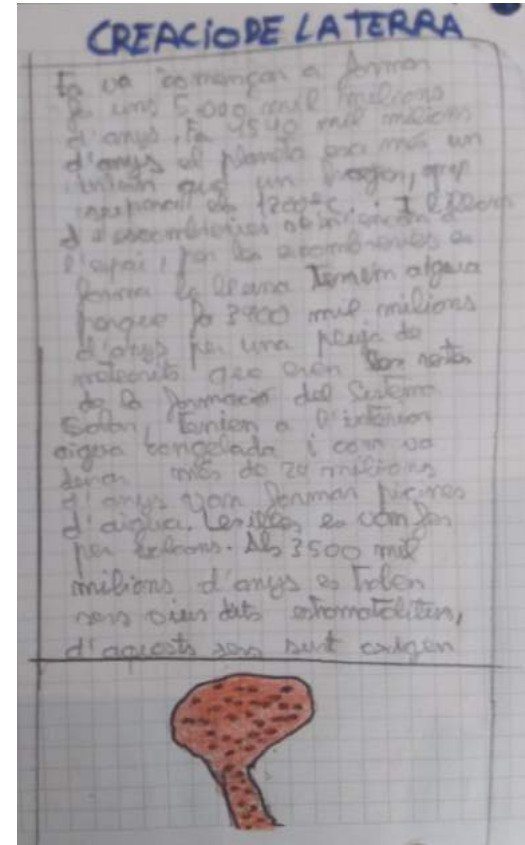 CREACIO DE LA TERRA
Es va començar a formar
fa uns 5.000 mil milions
d'anys. Fa 4540 mil milions
d'anys el planeta era més un
infern que un
1200ºC i
d'escombraries
l'espai, per les escombraries es
forma la lluna Tenim atgua
perque fa 3900 mil milions
d'anys per una pluja de
meteorits que eren
de la formació del Sistema
Solar, tenian a l'interior
aigua congelada i com va
durar més de 20 milions
d'anys vam formar picines
d'aigua. Les illes es vam fer
per bolcans. Als 3500 mil
milions d'anys es troben
sers vius dits estromatoliten,
d'aquests sers surt oxigen